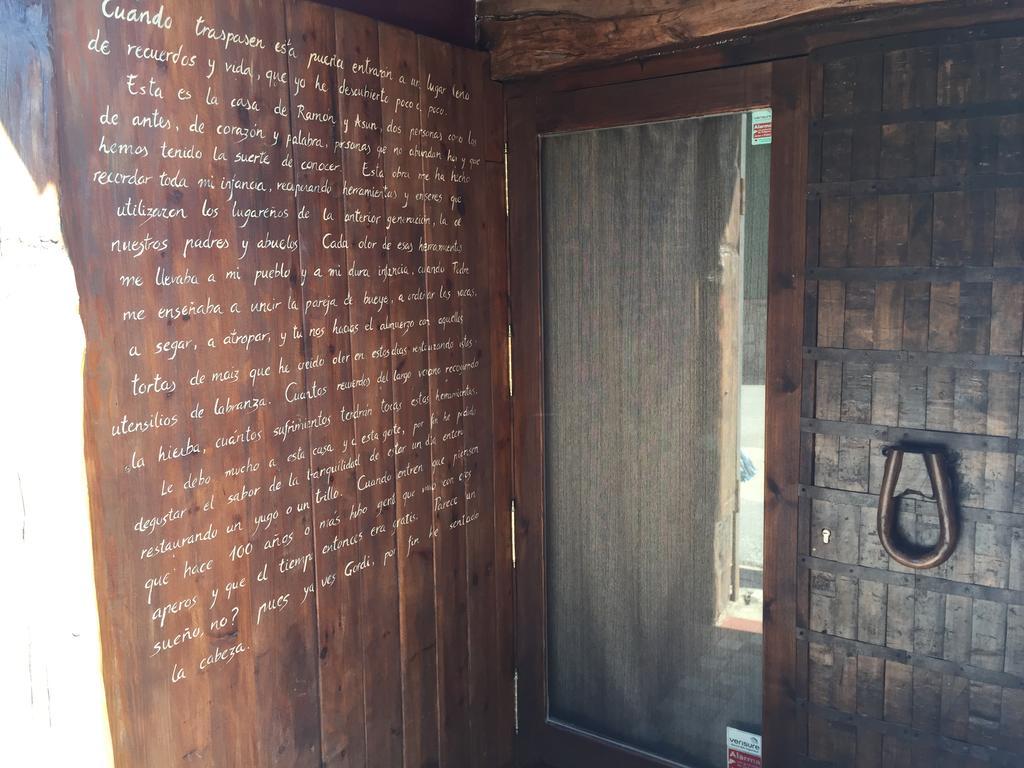 Cuando traspasen esta puerta entrarán a un lugar lleno
de recuerdos y vida, que yo he descubierto poco a poco.
Esta es la casa de Ramon y Asun, dos personas como las
de antes, de corazón y palabra, personas que no abundan hoy y que
hemos tenido la suerte de conocer. Esta obra me ha hecho
recordar toda mi infancia, recuperando herramientas y enseres que
utilizaron los lugareños de la anterior generación, la de
nuestros padres y abuelos. Cada olor de esas herramientas
me llevaba a mi pueblo y a mi dura infancia, cuando Padre
me enseñaba a uncir la pareja de bueye, a ordeñar las vacas,
a segar, a atropar, y tu nos hacias el almuerzo con aquellas
tortas de maiz que he creido oler en estos dias restaurando estos
utensilios de labranza. Cuantos recuerdos del largo verano recogiendo
la hierba, cuántos sufrimientos tendrán todas estas herramientas.
Le debo mucho a esta casa y a esta gente, por fin he podido
degustar el sabor de la tranquilidad de estar un dia entero
restaurando un yugo o un trillo. Cuando entren que piensen
que hace 100 años o más hubo gente que vivió con esos
aperos y que el tiempo entonces era gratis. Parece un
sueño, no? pues ya ves Gordi, por fin he sentado
la cabeza.
verisure
Alarma
verisure
Alarma